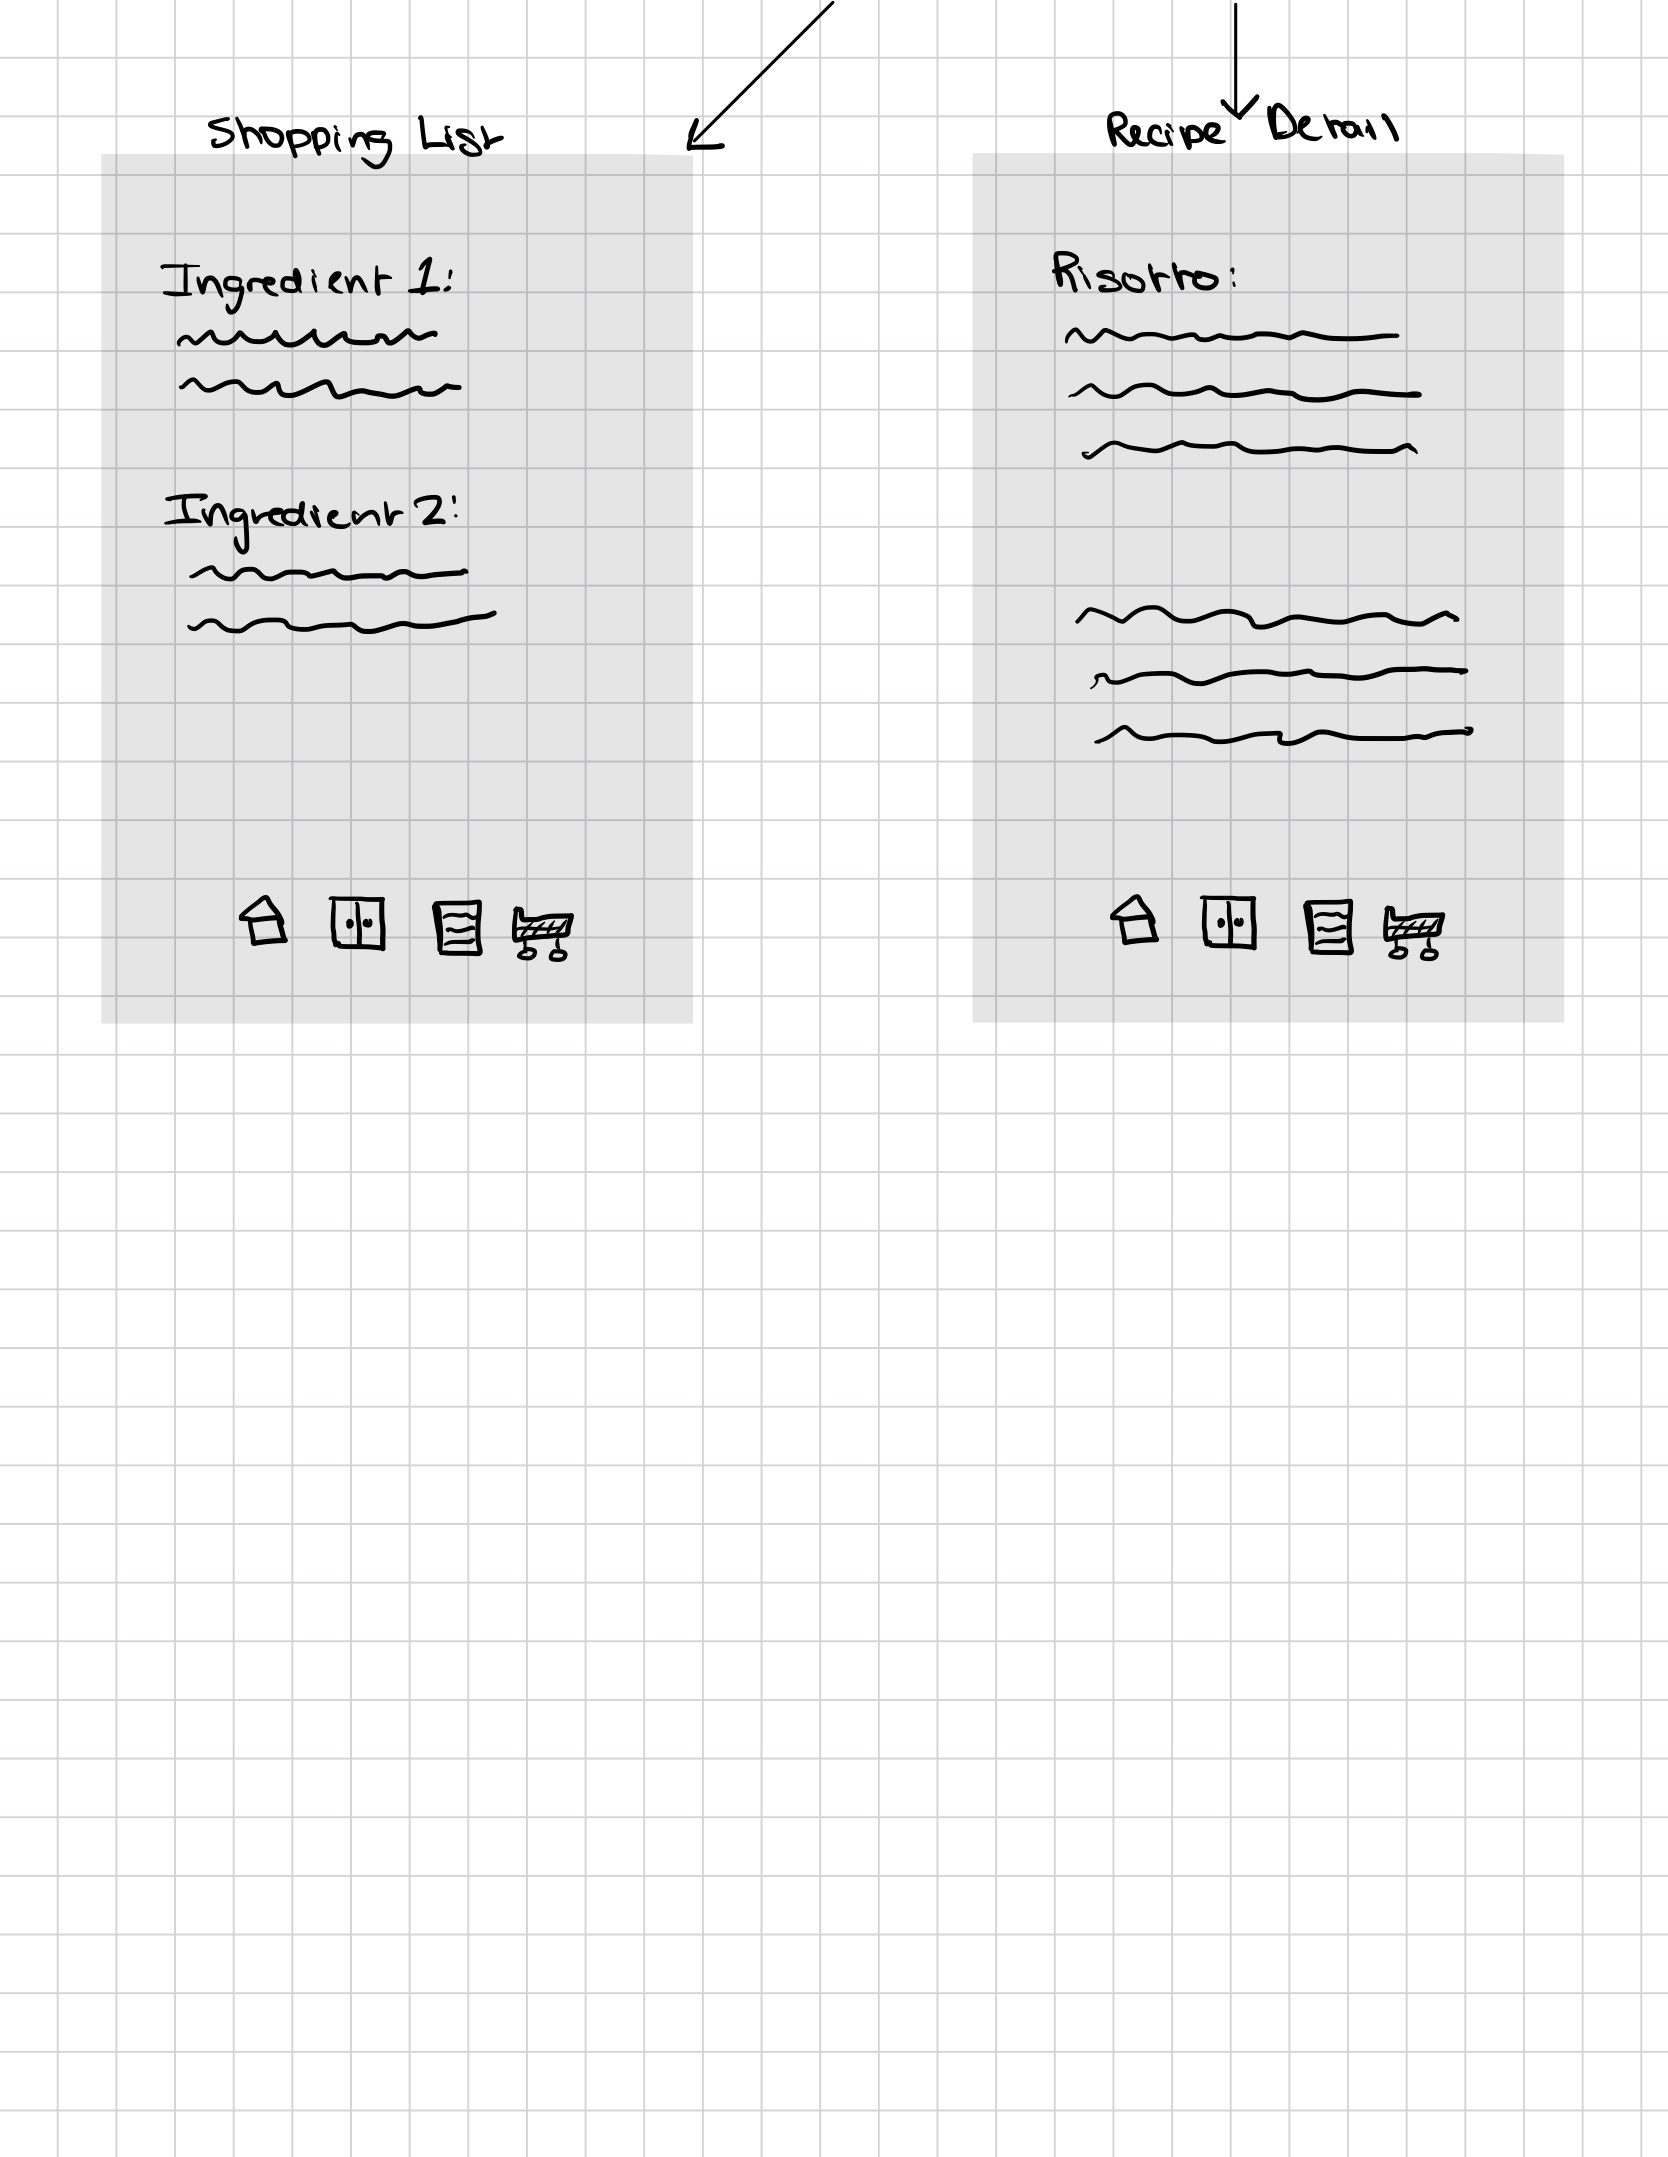 Shopping List
Ingredient 1:
Ingredient 2:
Recipe Detail
Risotto: